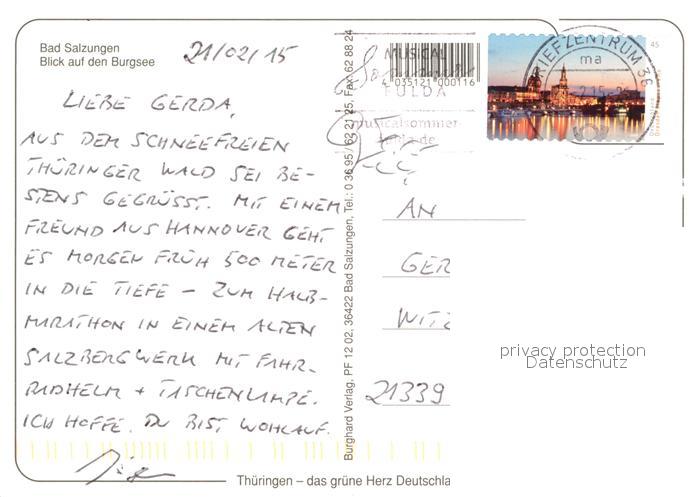 Bad Salzungen
Blick auf den Burgsee
21/02/15
LIEBE GERDA,
AUS DEM SCHNEEFREIEN
THÜRINGER WALD SEI BE-
STENS GEGRÜSST. MIT EINEM
FREUND AUS HANNOVER GEHT
ES MORGEN FRÜH 500 METER
IN DIE TIEFE – ZUM HALB-
MARATHON IN EINEM ALTEN
SALZBERGWERK MIT FAHR-
RADHELM + TASCHENLAMPE.
ICH HOFFE, DU BIST WOHLAUF.
Burghard Verlag, PF 12 02, 36422 Bad Salzungen, Tel.: 0 36 95 / 62 21 25, Fax 62 88 24
MUSICAL
4 035121 000116
FULDA
musicalsommer-
fulda.de
BRIEFZENTRUM 36
ma
45
AN
GER
WITZ
21339
privacy protection
Datenschutz
Thüringen – das grüne Herz Deutschla